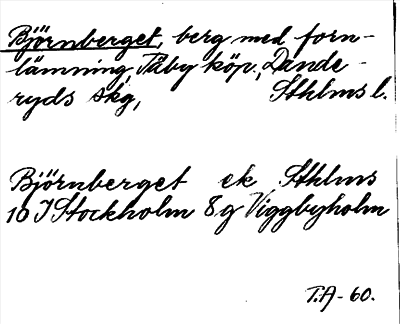 Björnberget, berg med forn-
lämning, Täby köp., Dande-
ryds skg, Sthlms l.
Björnberget ek Sthlms
10 I Stockholm 8 g Viggbyholm
T.A-60.